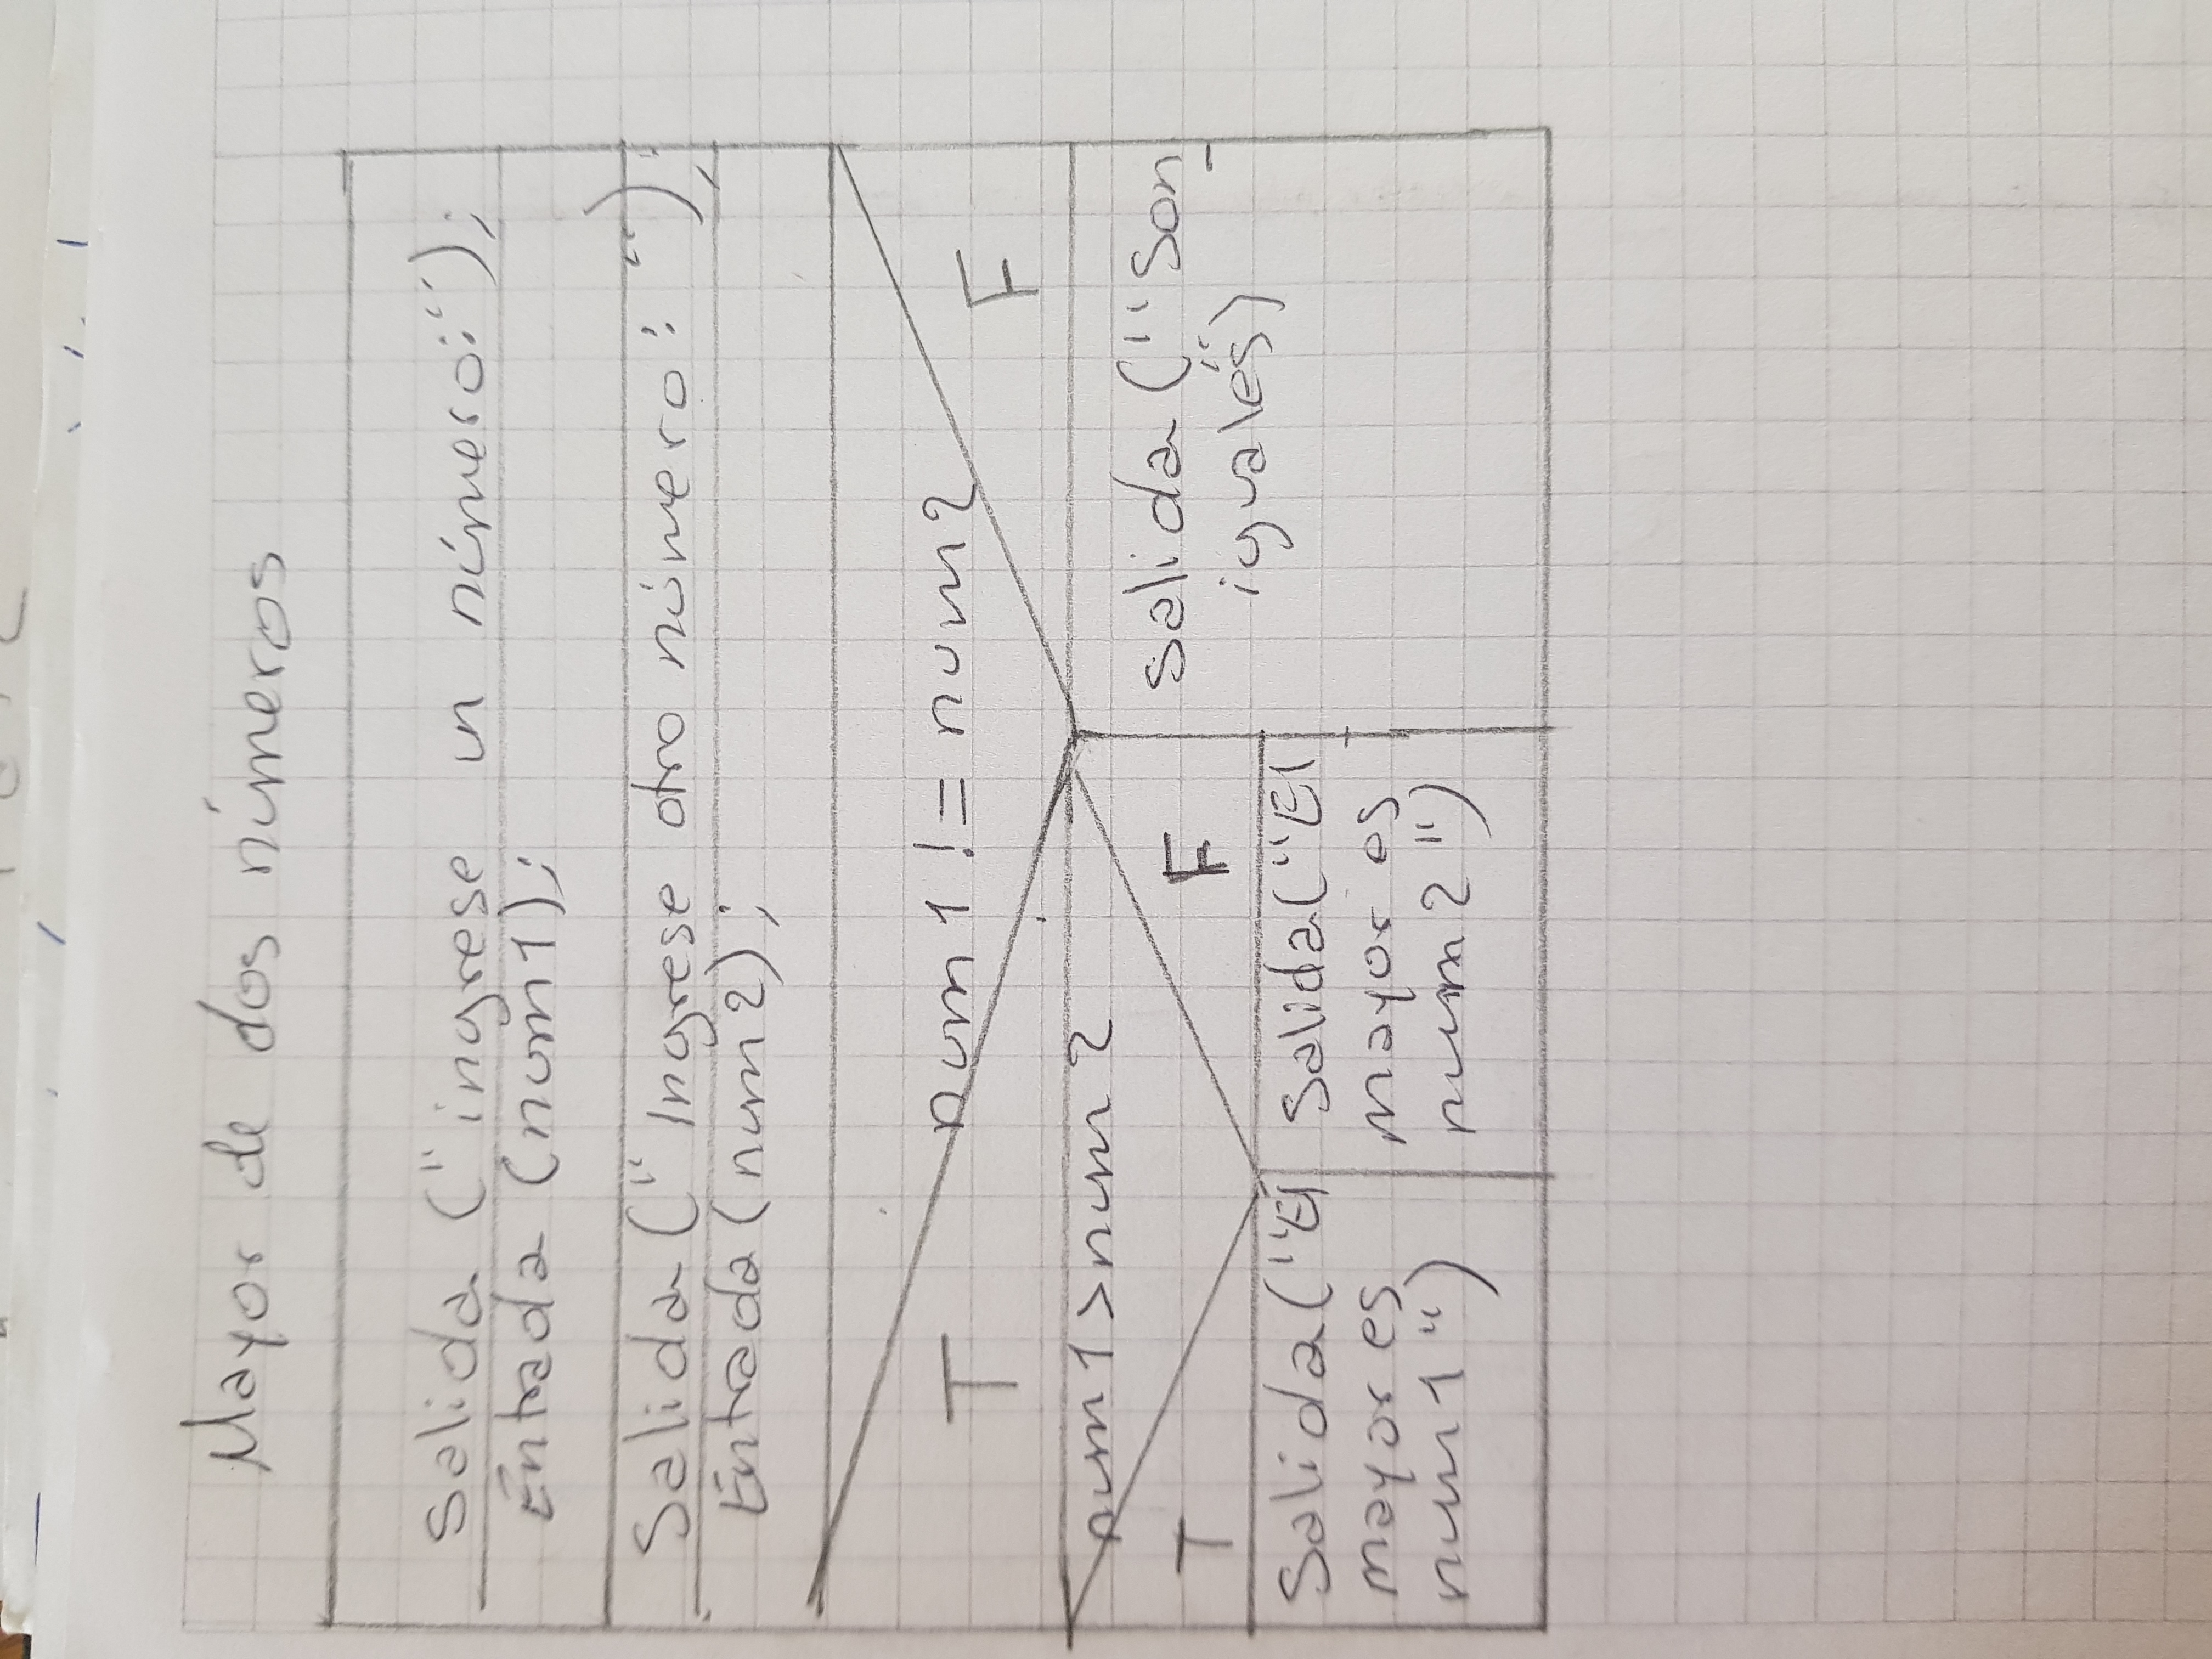 Mayor de dos números
Salida ("ingrese un número:");
Entrada (num1);
Salida ("Ingrese otro número: ");
Entrada (num2);
num1 != num2
T
F
num1>num2
T
F
Salida ("Son
iguales")
Salida ("El
mayor es
num1")
Salida ("El
mayor es
num2")